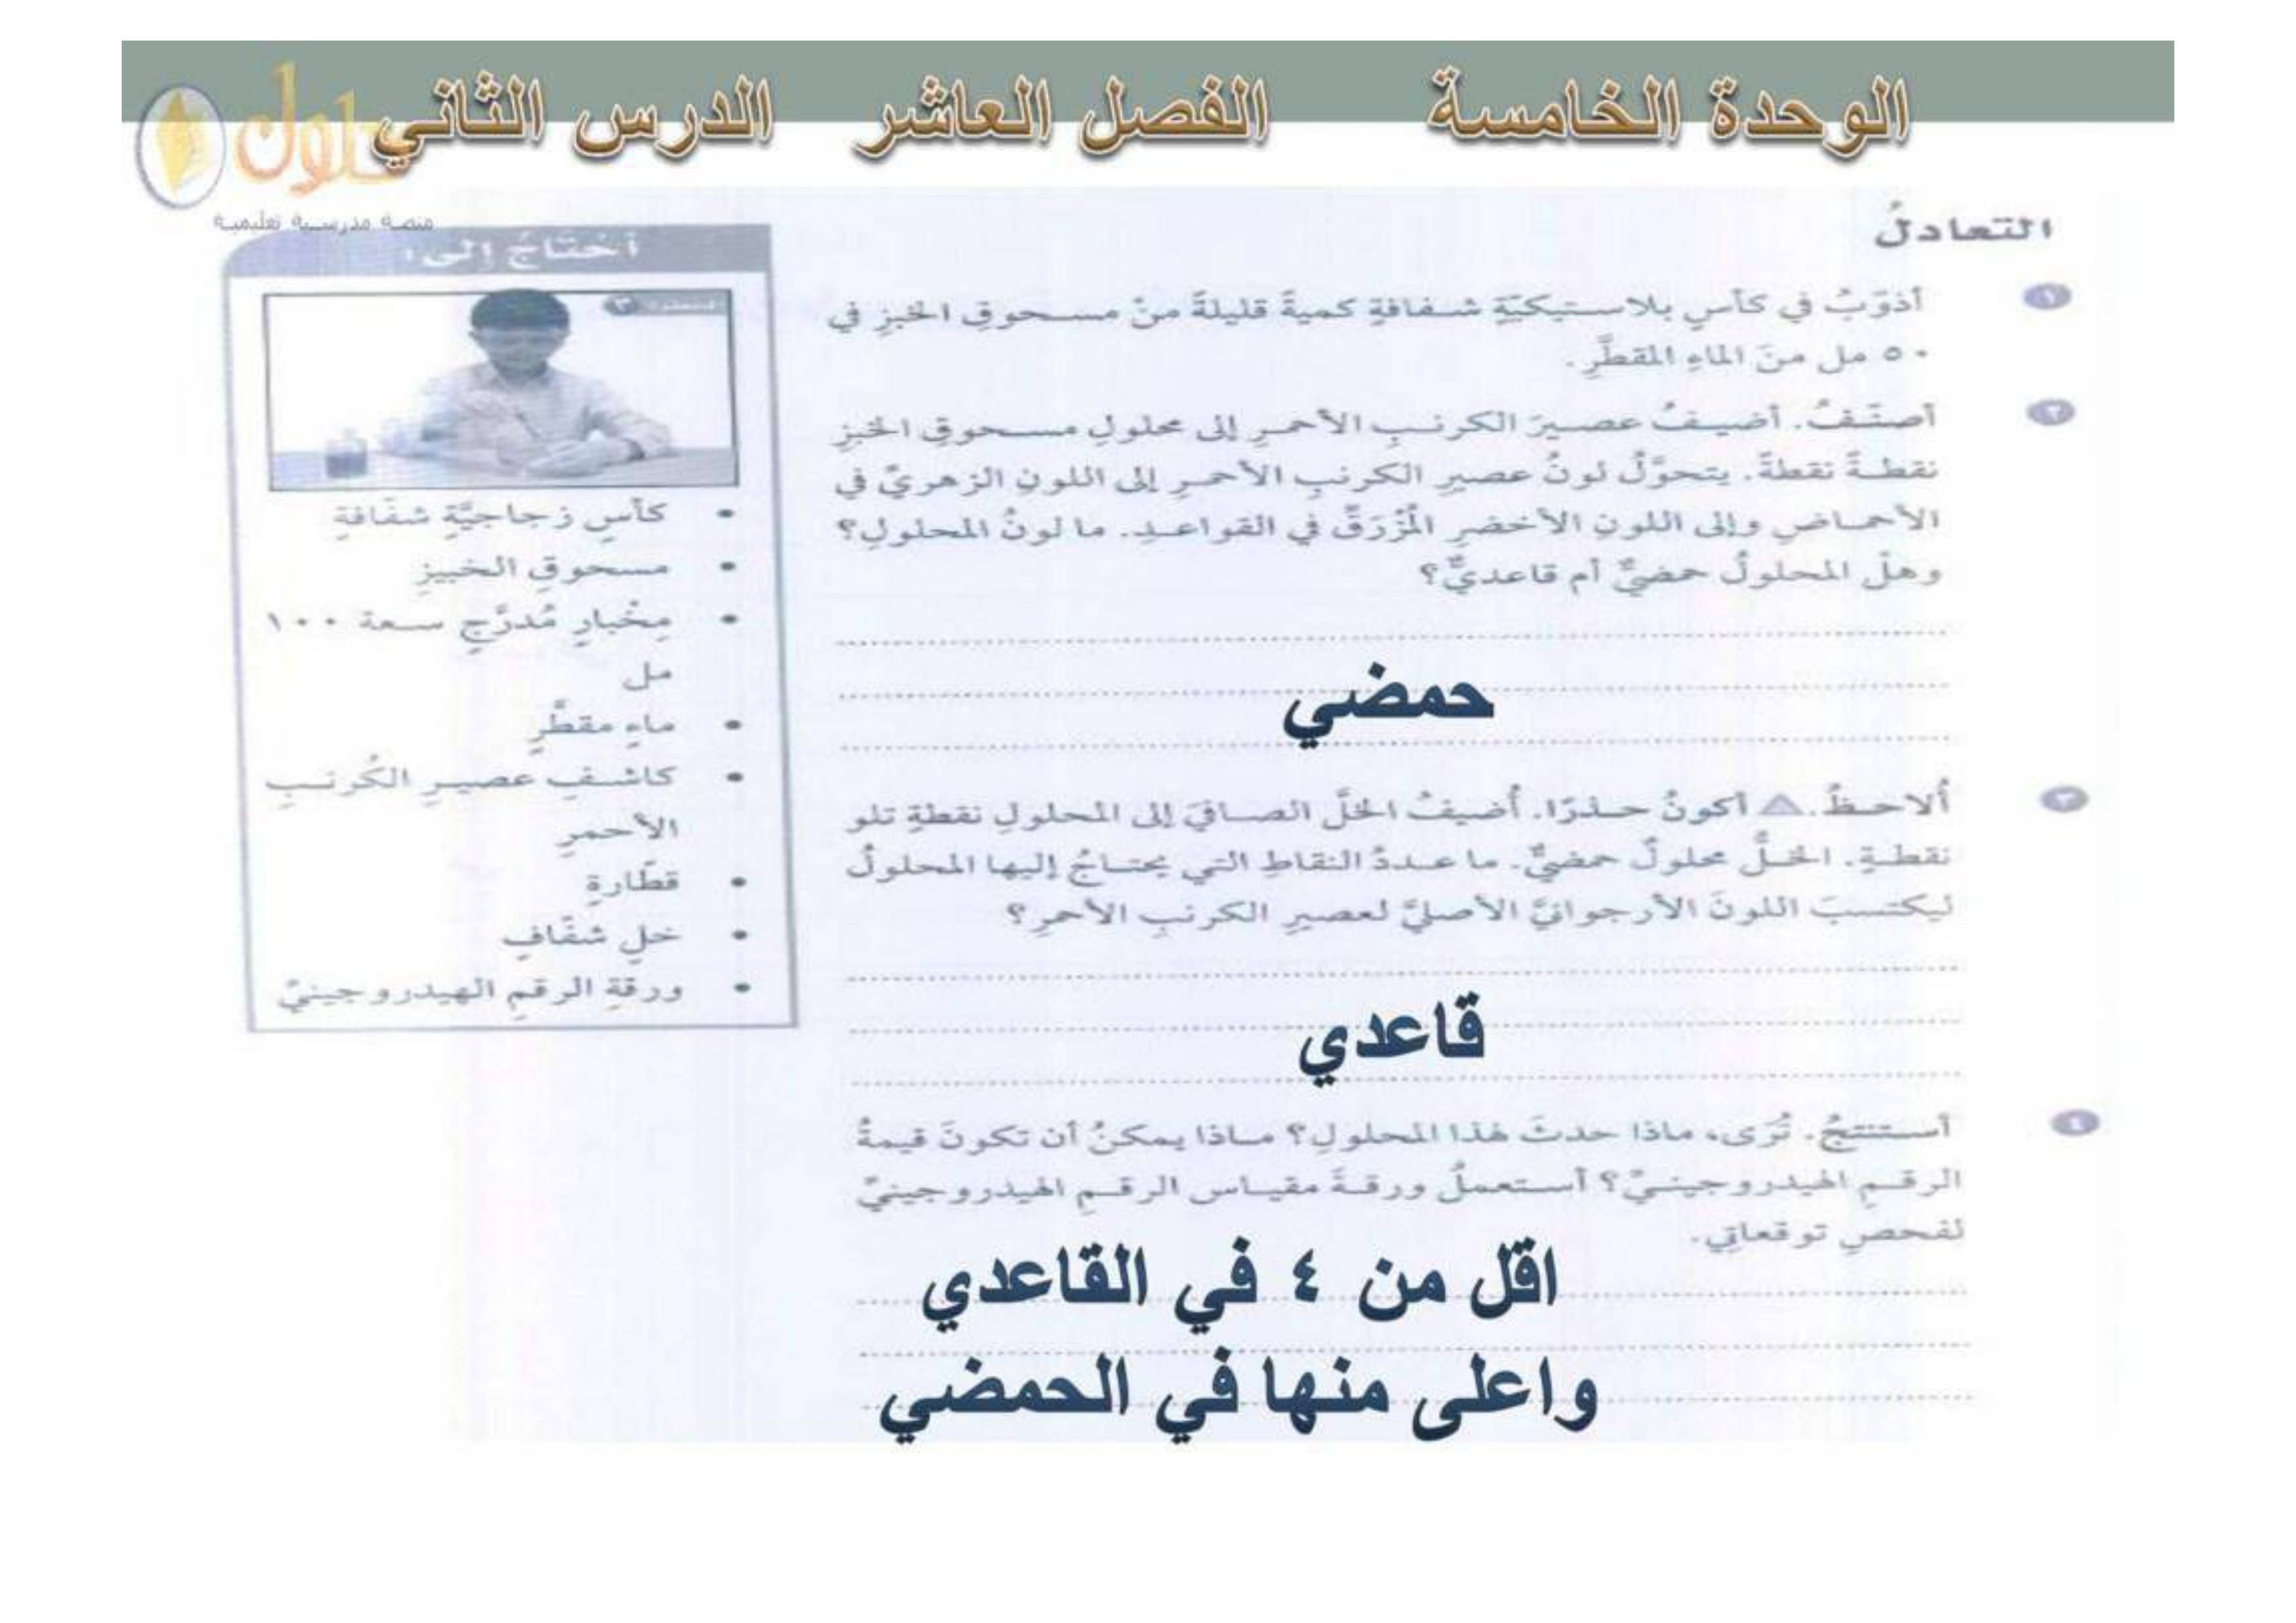 الوحدة الخامسة الفصل العاشر الدرس الثاني
حلول
منصة مدرسية تعليمية
التعادلُ
١ أذوّبُ في كأسٍ بلاستيكيّةٍ شفافةٍ كميةً قليلةً منْ مسحوقِ الخبزِ في
٥٠ مل منَ الماءِ المقطَّرِ.
٢ أصنّفُ. أضيفُ عصيرَ الكرنبِ الأحمرِ إلى محلولِ مسحوقِ الخبزِ
نقطةً نقطةً. يتحوَّلُ لونُ عصيرِ الكرنبِ الأحمرِ إلى اللونِ الزهريِّ في
الأحماضِ وإلى اللونِ الأخضرِ المُزْرَقِّ في القواعدِ. ما لونُ المحلولِ؟
وهلْ المحلولُ حمضيٌّ أم قاعديٌّ؟
حمضي
٣ أُلاحظُ. أكونُ حذرًا. أُضيفُ الخلَّ الصافيَ إلى المحلولِ نقطةٍ تلو
نقطةٍ. الخلُّ محلولٌ حمضيٌّ. ما عددُ النقاطِ التي يحتاجُ إليها المحلولُ
ليكتسبَ اللونَ الأرجوانيَّ الأصليَّ لعصيرِ الكرنبِ الأحمرِ؟
قاعدي
٤ أستنتجُ. تُرى، ماذا حدثَ لهذا المحلولِ؟ ماذا يمكنُ أن تكونَ قيمةُ
الرقمِ الهيدروجينيِّ؟ أستعملُ ورقةَ مقياسِ الرقمِ الهيدروجينيِّ
لفحصِ توقعاتي.
اقل من ٤ في القاعدي
واعلى منها في الحمضي
أحتاجُ إلى:
• كأسٍ زجاجيَّةٍ شفّافةٍ
• مسحوقِ الخبيزِ
• مِخْبارٍ مُدرَّجٍ سعة ١٠٠
مل
• ماءٍ مقطَّرٍ
• كاشفِ عصيرِ الكُرنبِ
الأحمرِ
• قطّارةٍ
• خلٍ شفّافٍ
• ورقةِ الرقمِ الهيدروجينيِّ